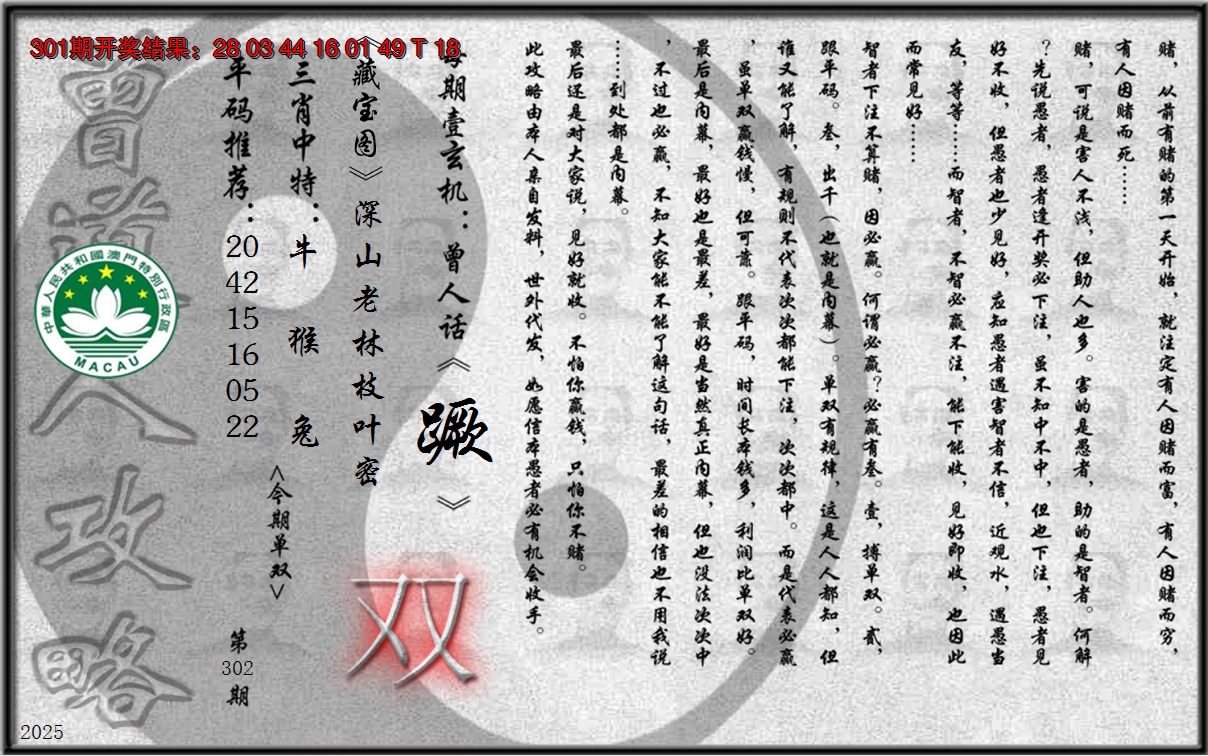 301期开奖结果：28 03 44 16 01 49 T 18
赌，从前有赌的第一天开始，就注定有人因赌而富，有人因赌而穷，
有人因赌而死……
赌，可说是害人不浅，但助人也多。害的是愚者，助的是智者。何解
？先说愚者，愚者逢开奖必下注，虽不知中不中，但也下注，愚者见
好不收，但愚者也少见好，应知愚者遇害智者不信，近观水，遇愚当
友，等等……而智者，不智必赢不注，能下能收，见好即收，也因此
而常见好……
智者下注不算赌，因必赢。何谓必赢？必赢有叁。壹，搏单双。贰，
跟平码。叁，出千（也就是内幕）。单双有规律，这是人人都知，但
谁又能了解，有规则不代表次次都能下注，次次都中。而是代表必赢
，虽单双赢钱慢，但可靠。跟平码，时间长本钱多，利润比单双好。
最后是内幕，最好也是最差，最好是当然真正内幕，但也没法次次中
，不过也必赢，不知大家能不能了解这句话，最差的相信也不用我说
……到处都是内幕。
最后还是对大家说，见好就收。不怕你赢钱，只怕你不赌。
此攻略由本人亲自发料，世外代发，如愿信本愚者必有机会收手。
每期壹玄机：曾人话《蹶》
《藏宝图》深山老林枝叶密
双
三肖中特：牛 猴 兔
<今期单双>
平码推荐：20 42 15 16 05 22
第302期
曾道人攻略
中華人民共和國澳門特別行政區
MACAU
2025